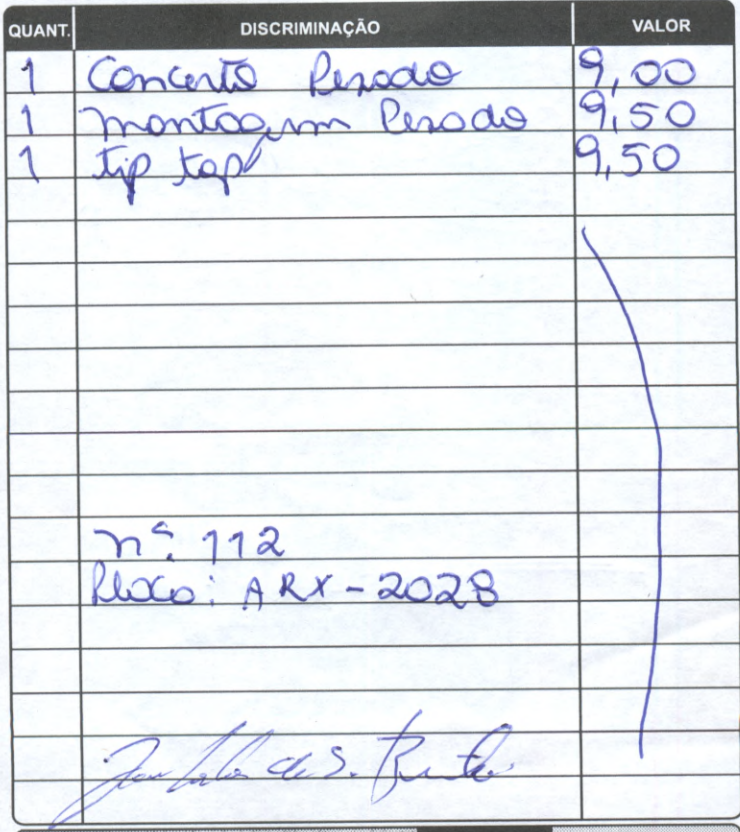 QUANT. DISCRIMINAÇÃO VALOR
1 Concerto Pesado 9,00
1 montagem Pesado 9,50
1 tip top 9,50
nº 112
Placa: ARX-2028